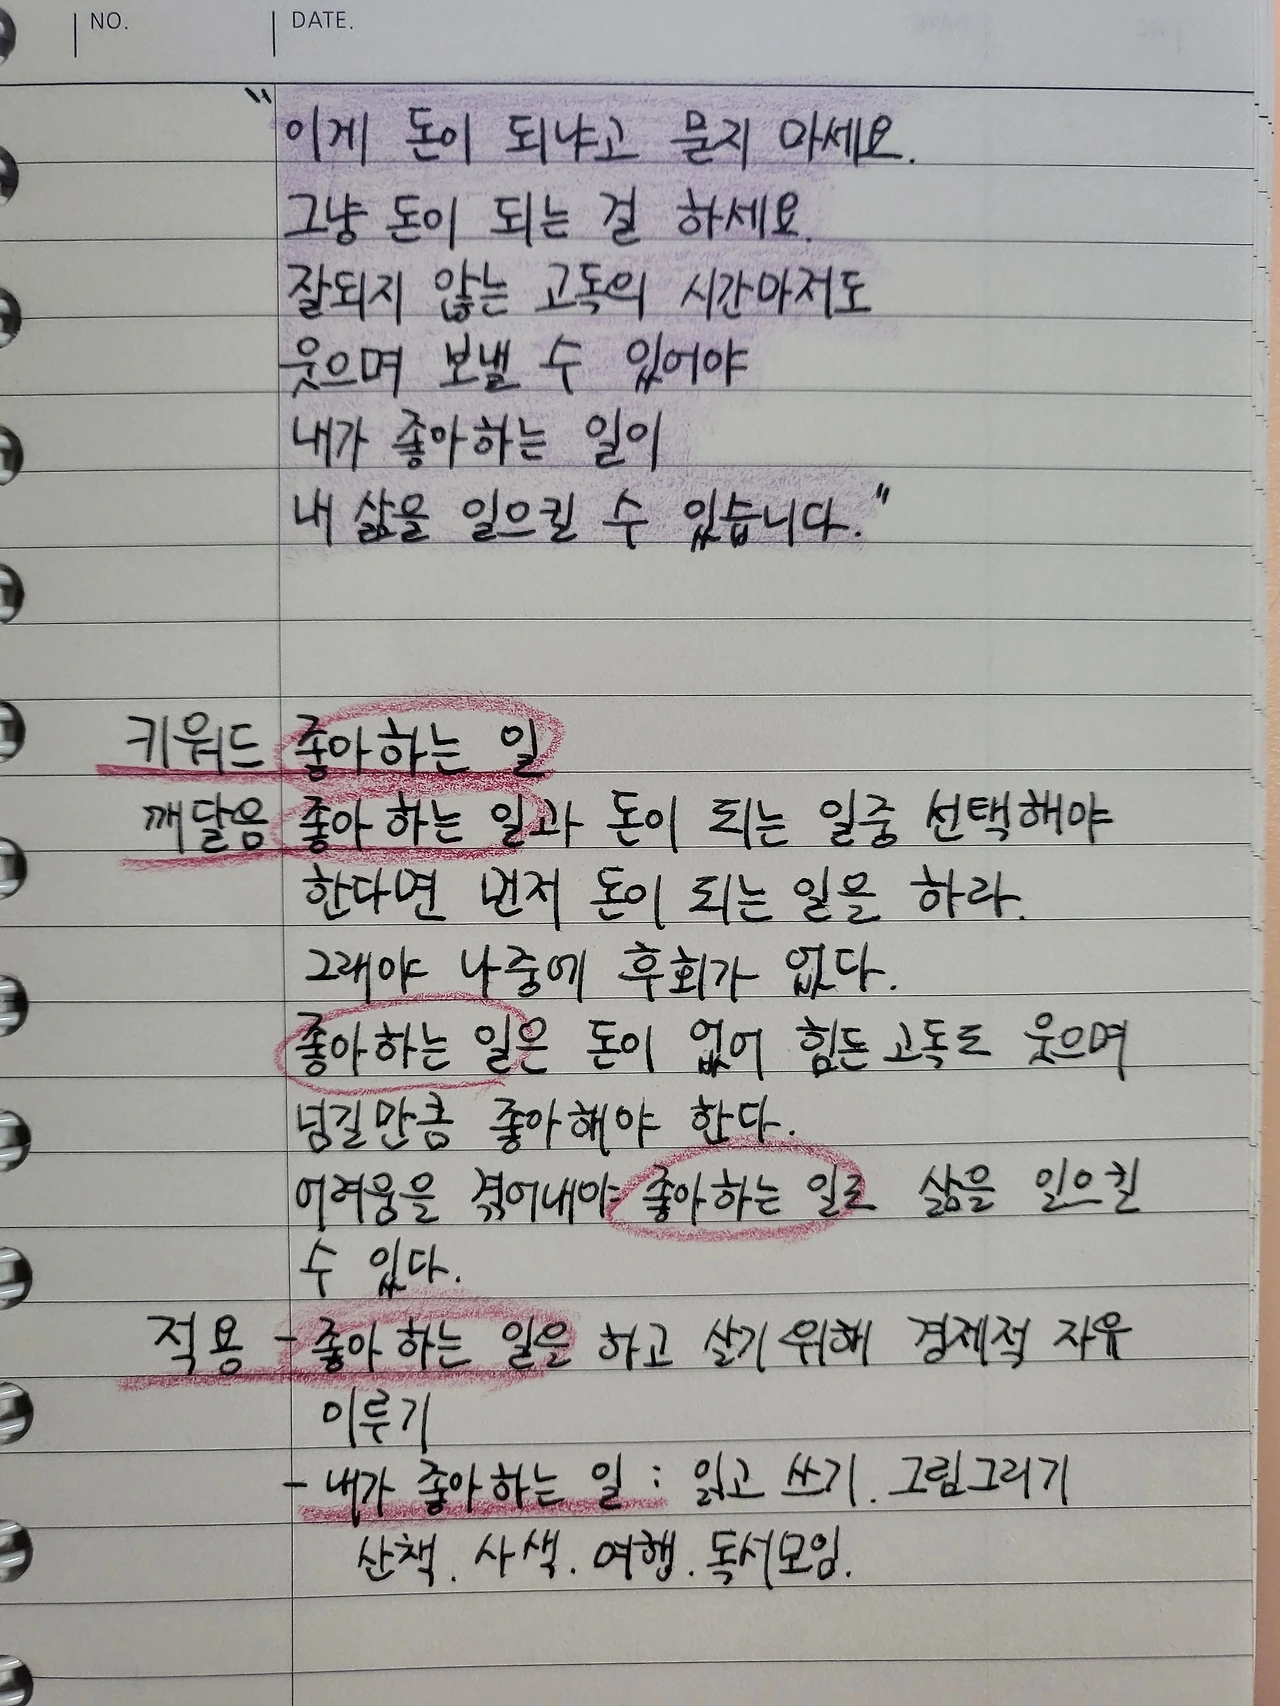 NO. DATE.
"이게 돈이 되냐고 묻지 마세요.
그냥 돈이 되는 걸 하세요.
잘되지 않는 고독의 시간마저도
웃으며 보낼 수 있어야
내가 좋아하는 일이
내 삶을 일으킬 수 있습니다."
키워드 좋아하는 일
깨달음 좋아하는 일과 돈이 되는 일중 선택해야
한다면 먼저 돈이 되는 일을 하라.
그래야 나중에 후회가 없다.
좋아하는 일은 돈이 없어 힘든 고독도 웃으며
넘길만큼 좋아해야 한다.
어려움을 겪어내야 좋아하는 일로 삶을 일으킬
수 있다.
적용 - 좋아하는 일을 하고 살기 위해 경제적 자유
이루기
- 내가 좋아하는 일 : 읽고 쓰기. 그림그리기
산책. 사색. 여행. 독서모임.